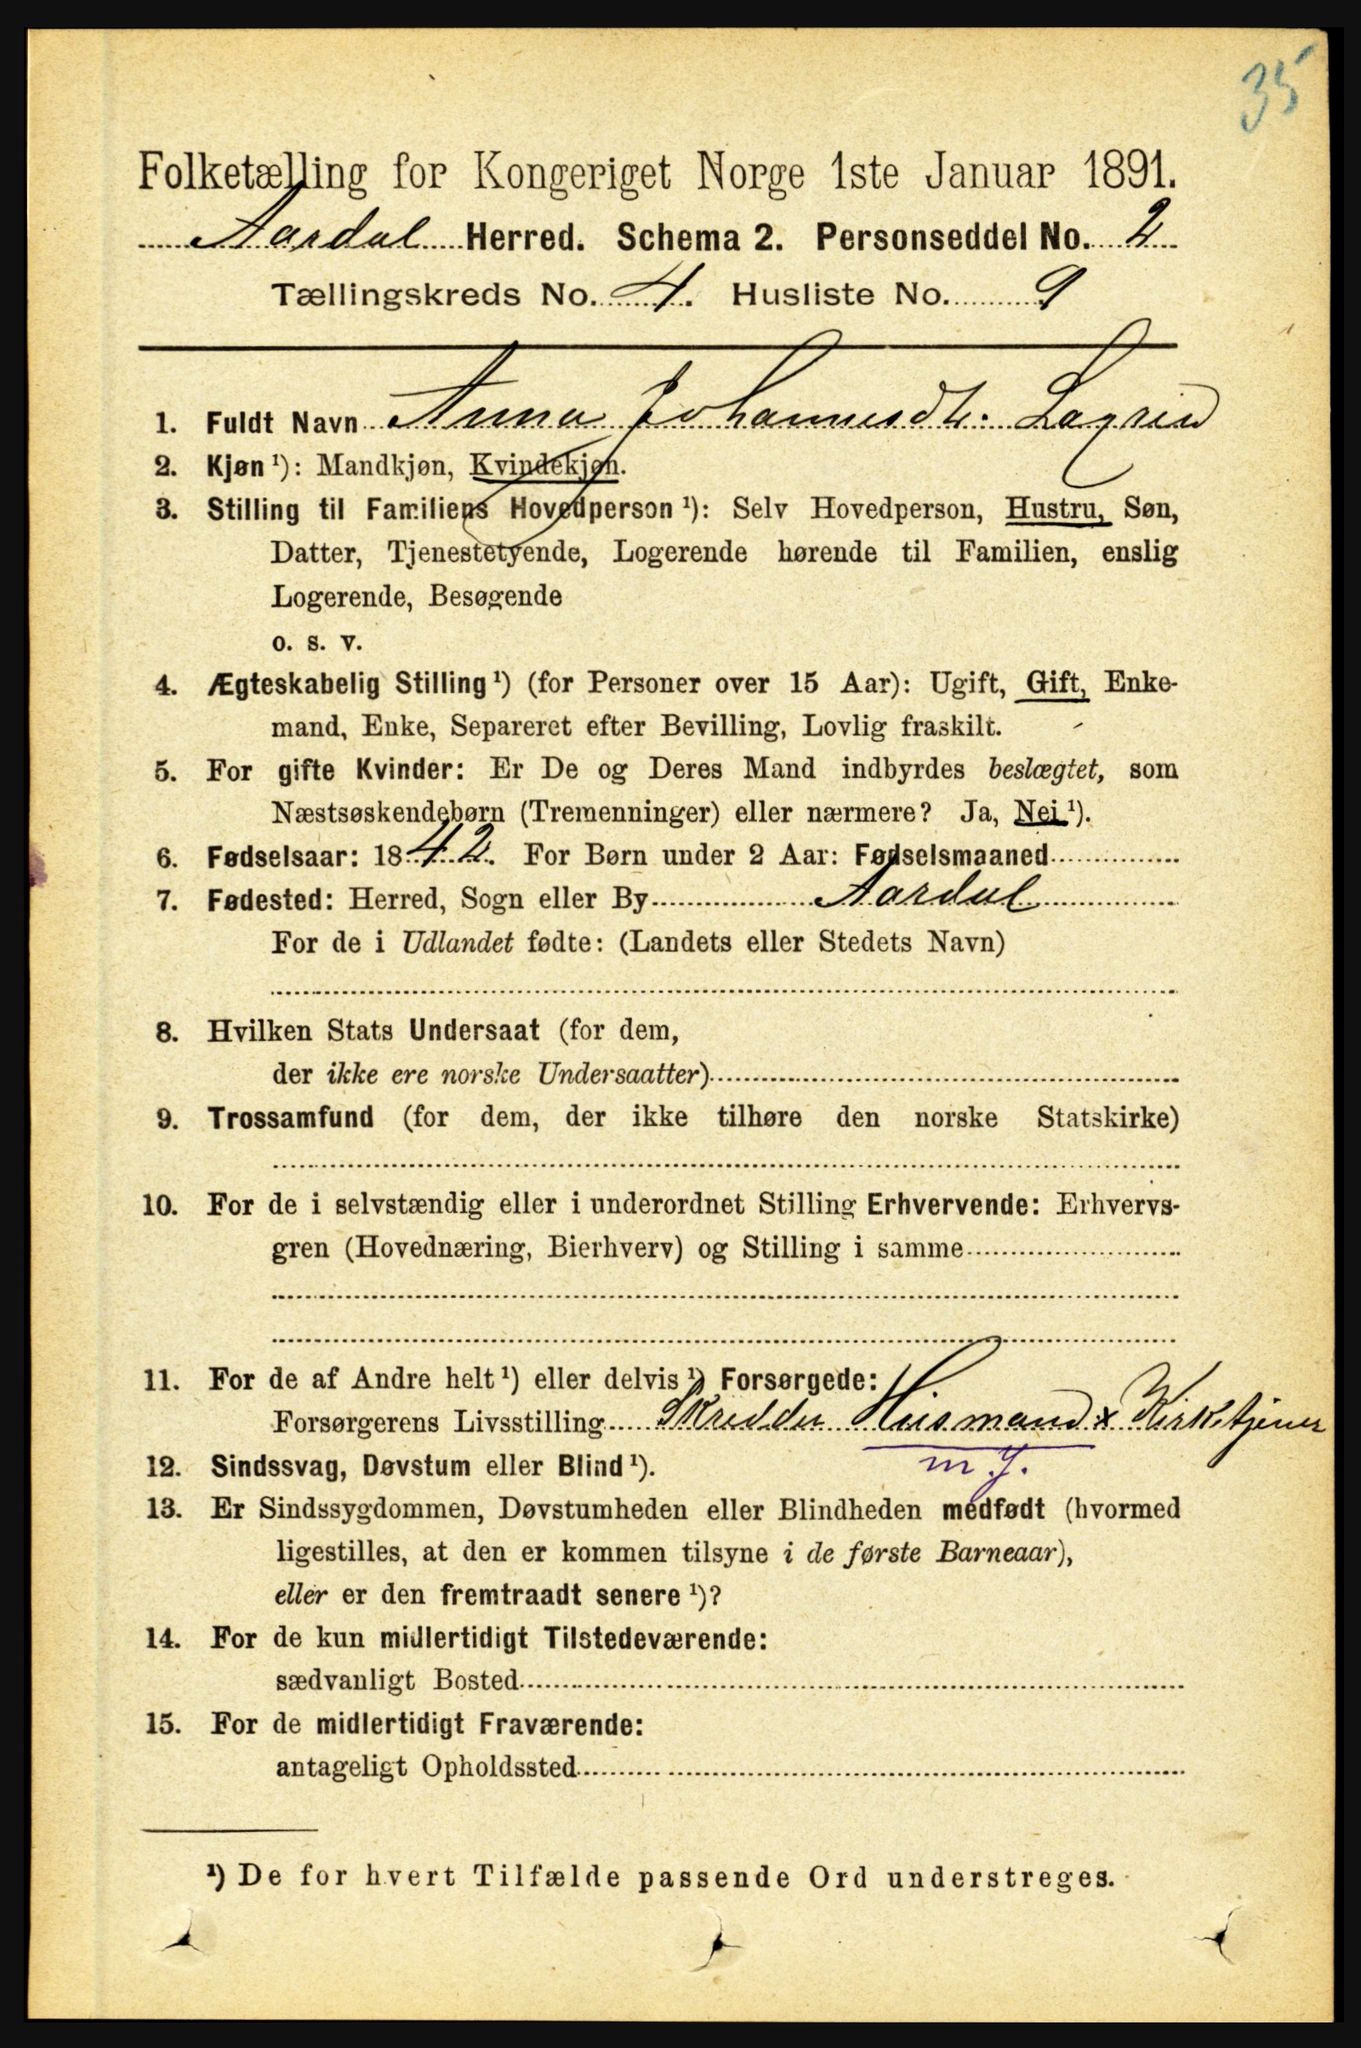 35
Folketælling for Kongeriget Norge 1ste Januar 1891.
Aardal Herred. Schema 2. Personseddel No. 2
Tællingskreds No. 4. Husliste No. 9
1. Fuldt Navn Anna Johannesdtr. Lægrein
2. Kjøn ¹): Mandkjøn, Kvindekjøn.
3. Stilling til Familiens Hovedperson ¹): Selv Hovedperson, Hustru, Søn,
Datter, Tjenestetyende, Logerende hørende til Familien, enslig
Logerende, Besøgende
o. s. v.
4. Ægteskabelig Stilling ¹) (for Personer over 15 Aar): Ugift, Gift, Enke-
mand, Enke, Separeret efter Bevilling, Lovlig fraskilt.
5. For gifte Kvinder: Er De og Deres Mand indbyrdes beslægtet, som
Næstsøskendebørn (Tremenninger) eller nærmere? Ja, Nei ¹).
6. Fødselsaar: 1842. For Børn under 2 Aar: Fødselsmaaned
7. Fødested: Herred, Sogn eller By Aardal
For de i Udlandet fødte: (Landets eller Stedets Navn)
8. Hvilken Stats Undersaat (for dem,
der ikke ere norske Undersaatter)
9. Trossamfund (for dem, der ikke tilhøre den norske Statskirke)
10. For de i selvstændig eller i underordnet Stilling Erhvervende: Erhvervs-
gren (Hovednæring, Bierhverv) og Stilling i samme
11. For de af Andre helt ¹) eller delvis ¹) Forsørgede:
Forsørgerens Livsstilling Skredder Husmand x Kirketjener
m. J.
12. Sindssvag, Døvstum eller Blind ¹).
13. Er Sindssygdommen, Døvstumheden eller Blindheden medfødt (hvormed
ligestilles, at den er kommen tilsyne i de første Barneaar),
eller er den fremtraadt senere ¹)?
14. For de kun midlertidigt Tilstedeværende:
sædvanligt Bosted
15. For de midlertidigt Fraværende:
antageligt Opholdssted
¹) De for hvert Tilfælde passende Ord understreges.